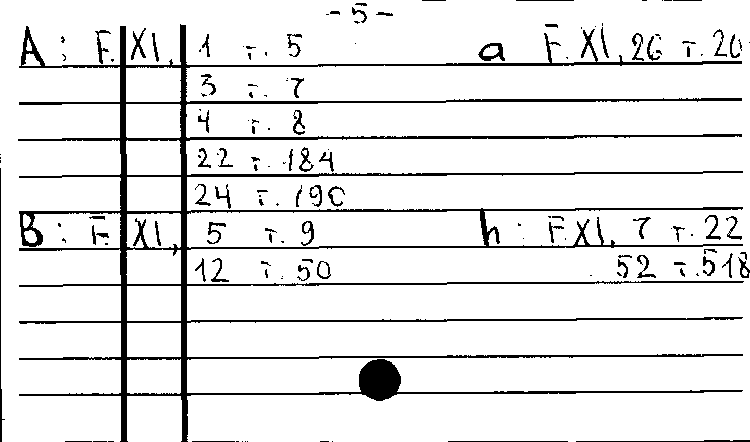 - 5 -
A : F. XI, 1 т. 5 a F. XI, 26 т. 20
3 т. 7
4 т. 8
22 т. 184
24 т. 190
B : F. XI, 5 т. 9 h : F. XI, 7 т. 22
12 т. 50 52 т. 518